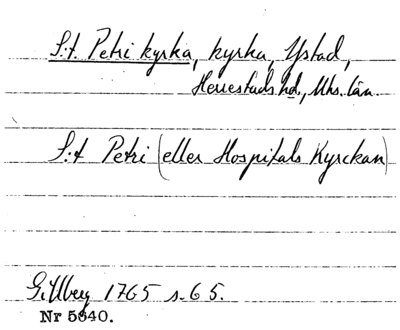 S:t. Petri kyrka, kyrka, Ystad,
Herrestads hd., Mhs. län.
S:t Petri (eller Hospitals Kyrckan)
Gillberg 1765 s. 65.
Nr 5840.